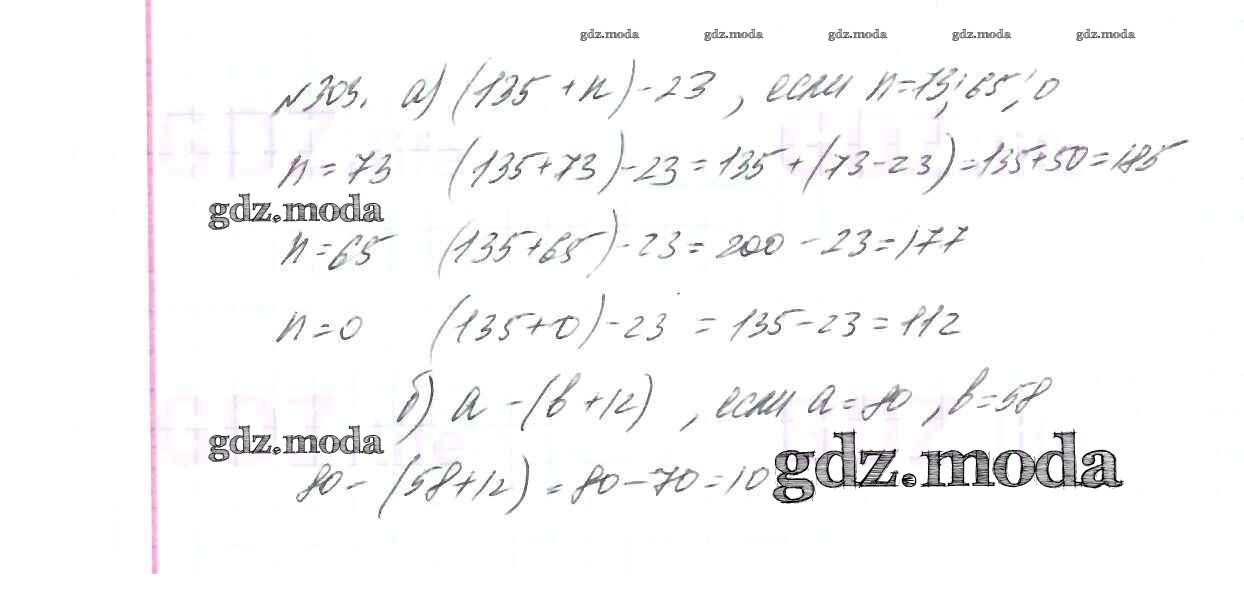 gdz.moda gdz.moda gdz.moda gdz.moda gdz.moda
№303. а) (135+n)-23, если n=13; 65; 0
n=73 (135+73)-23=135+(73-23)=135+50=185
gdz.moda
n=65 (135+65)-23=200-23=177
n=0 (135+0)-23=135-23=112
б) a-(b+12), если a=80, b=58
gdz.moda
80-(58+12)=80-70=10
gdz.moda